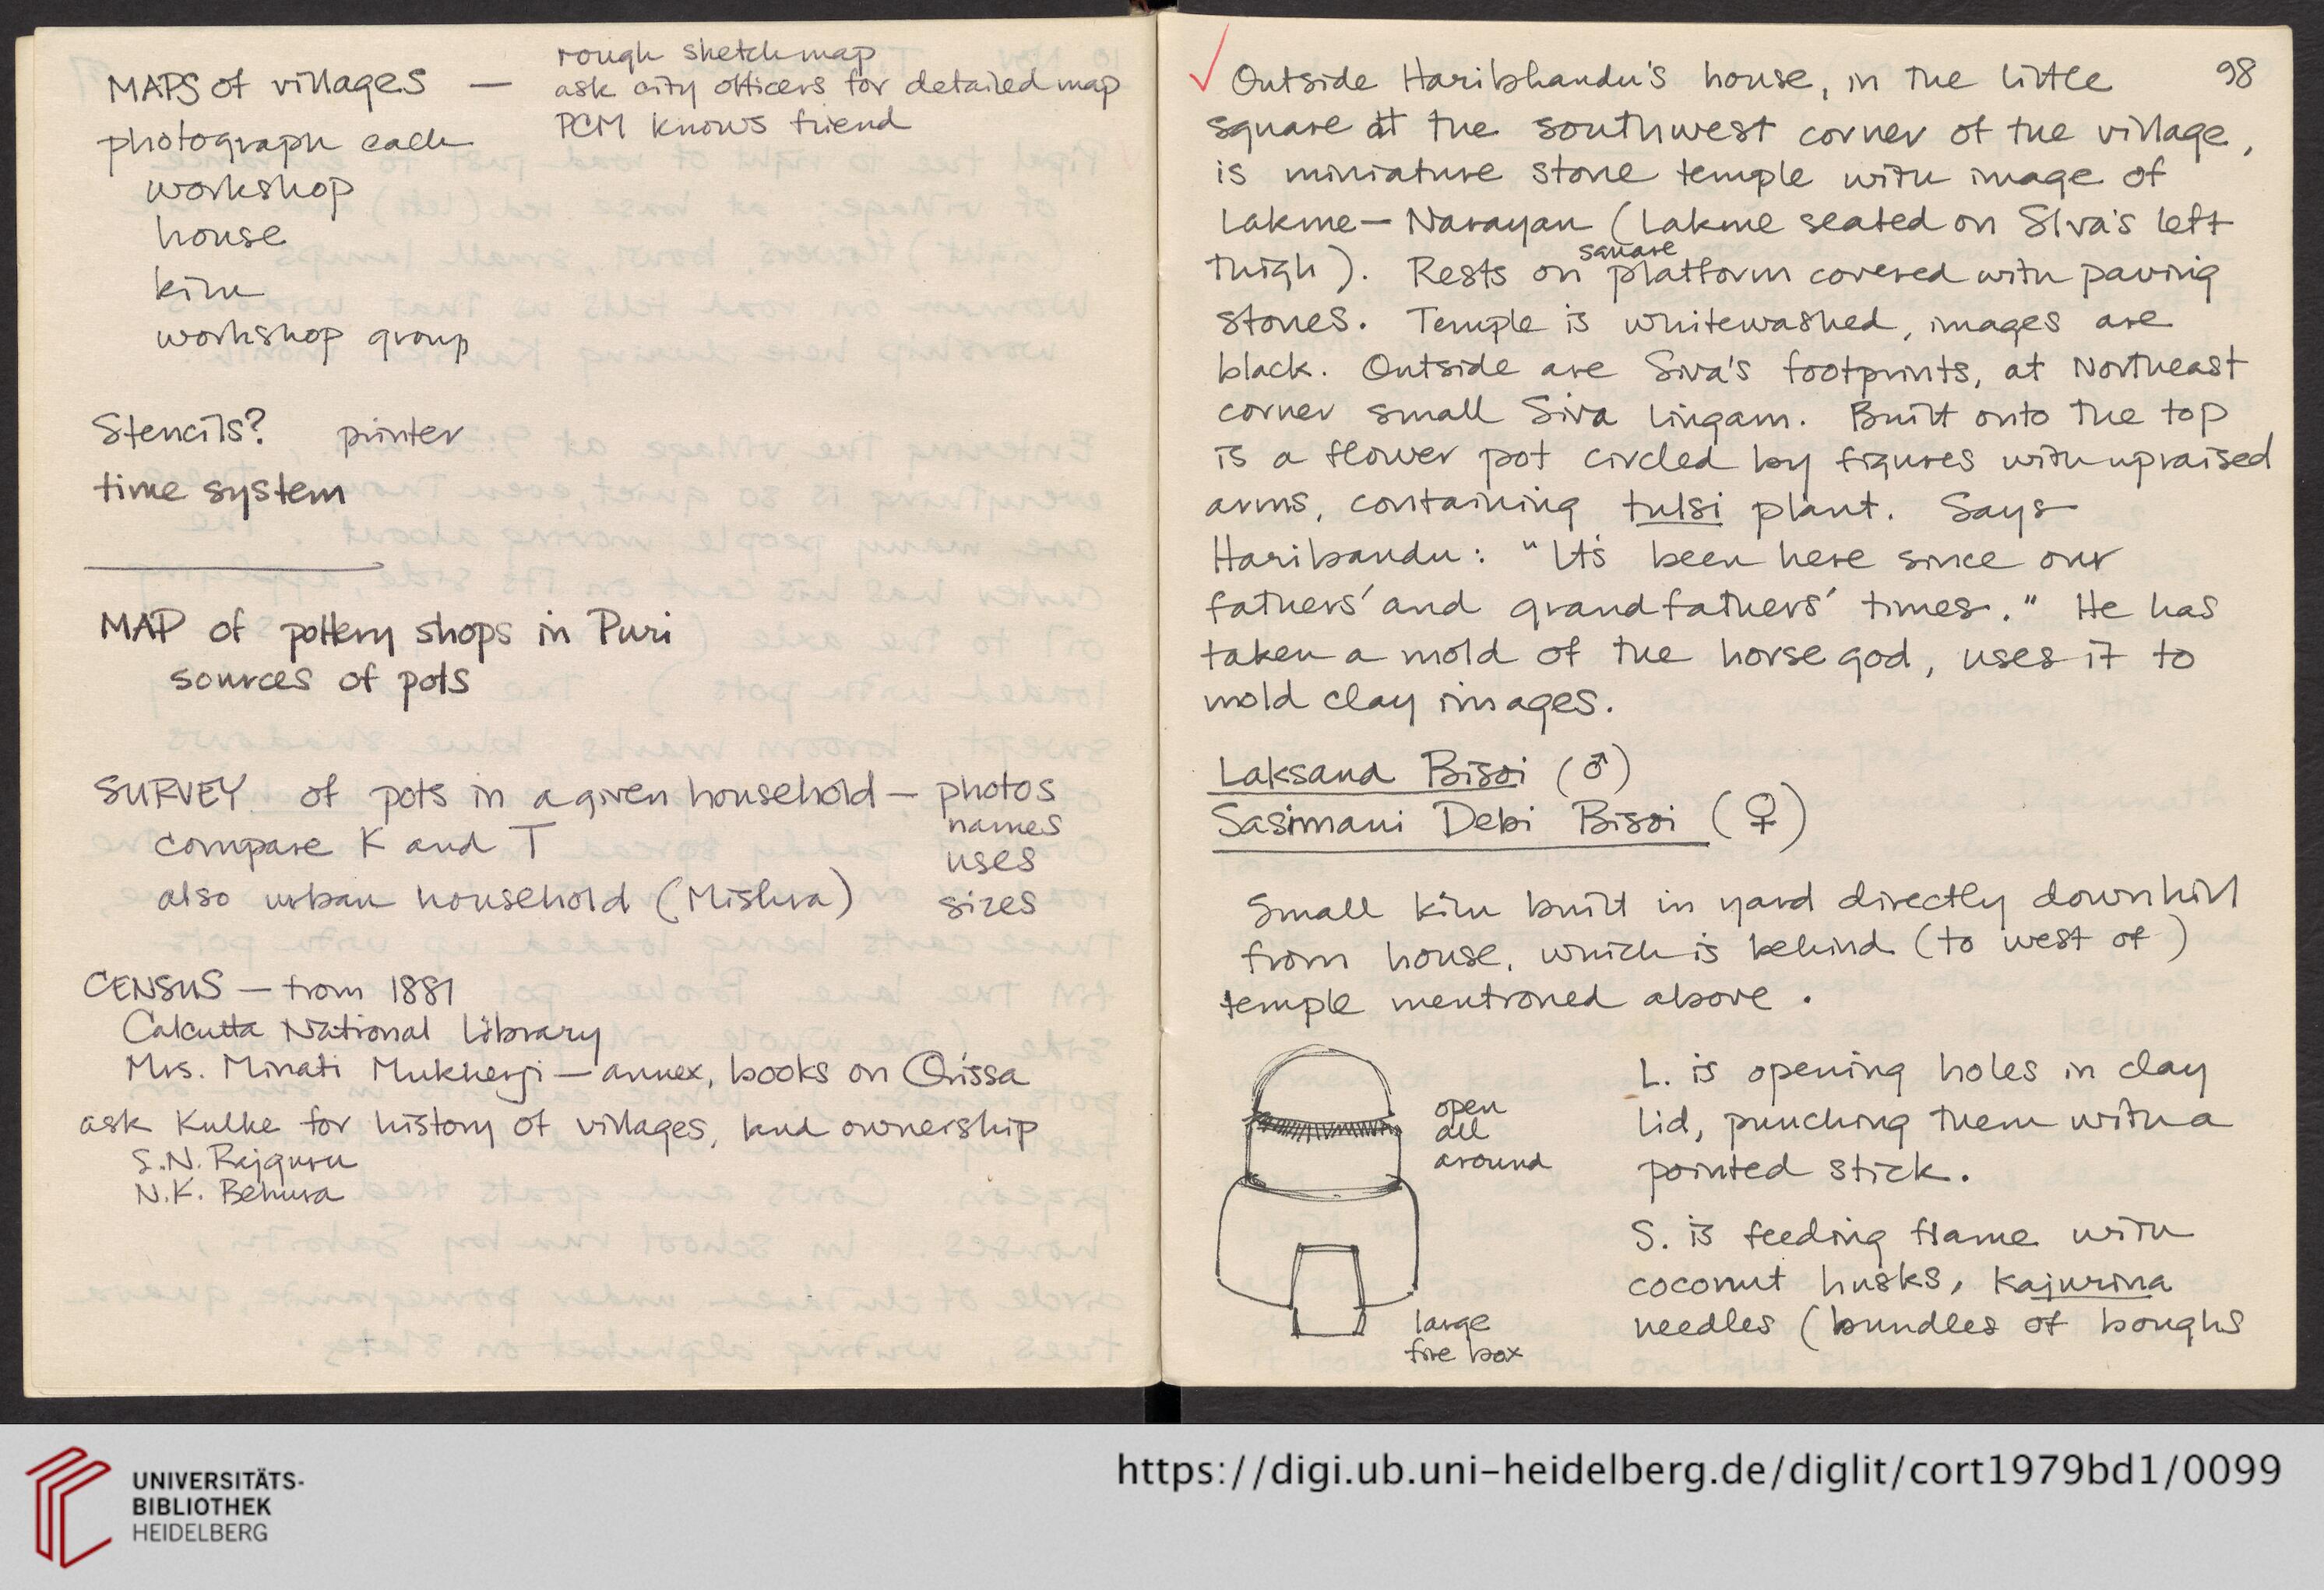 MAPS of villages —
rough sketch map
ask city officers for detailed map
PCM knows friend
photograph each
workshop
house
kiln
workshop group
Stencils? printer
time system
MAP of pottery shops in Puri
sources of pots
SURVEY of pots in a given household — photos
names
compare K and T
uses
also urban household (Mishra) sizes
CENSUS — from 1881
Calcutta National Library
Mrs. Minati Mukherji — annex, books on Orissa
ask Kulke for history of villages, land ownership
S.N. Rajguru
N.K. Behura
98
✓ Outside Haribhandu's house, in the little
square at the southwest corner of the village,
is miniature stone temple with image of
Lakme - Narayan (Lakme seated on Siva's left
thigh). Rests on square platform covered with paving
stones. Temple is whitewashed, images are
black. Outside are Siva's footprints, at Northeast
corner small Siva lingam. Built onto the top
is a flower pot circled by figures with upraised
arms, containing tulsi plant. Says
Haribandu: "It's been here since our
fathers' and grandfathers' times." He has
taken a mold of the horse god, uses it to
mold clay images.
Laksana Bisoi (♂)
Sasimani Debi Bisoi (♀)
Small kiln built in yard directly downhill
from house, which is behind (to west of)
temple mentioned above.
open
all
around
large
fire box
L. is opening holes in clay
lid, punching them with a
pointed stick.
S. is feeding flame with
coconut husks, kajurina
needles (bundles of boughs
UNIVERSITÄTS-
BIBLIOTHEK
HEIDELBERG
https://digi.ub.uni-heidelberg.de/diglit/cort1979bd1/0099